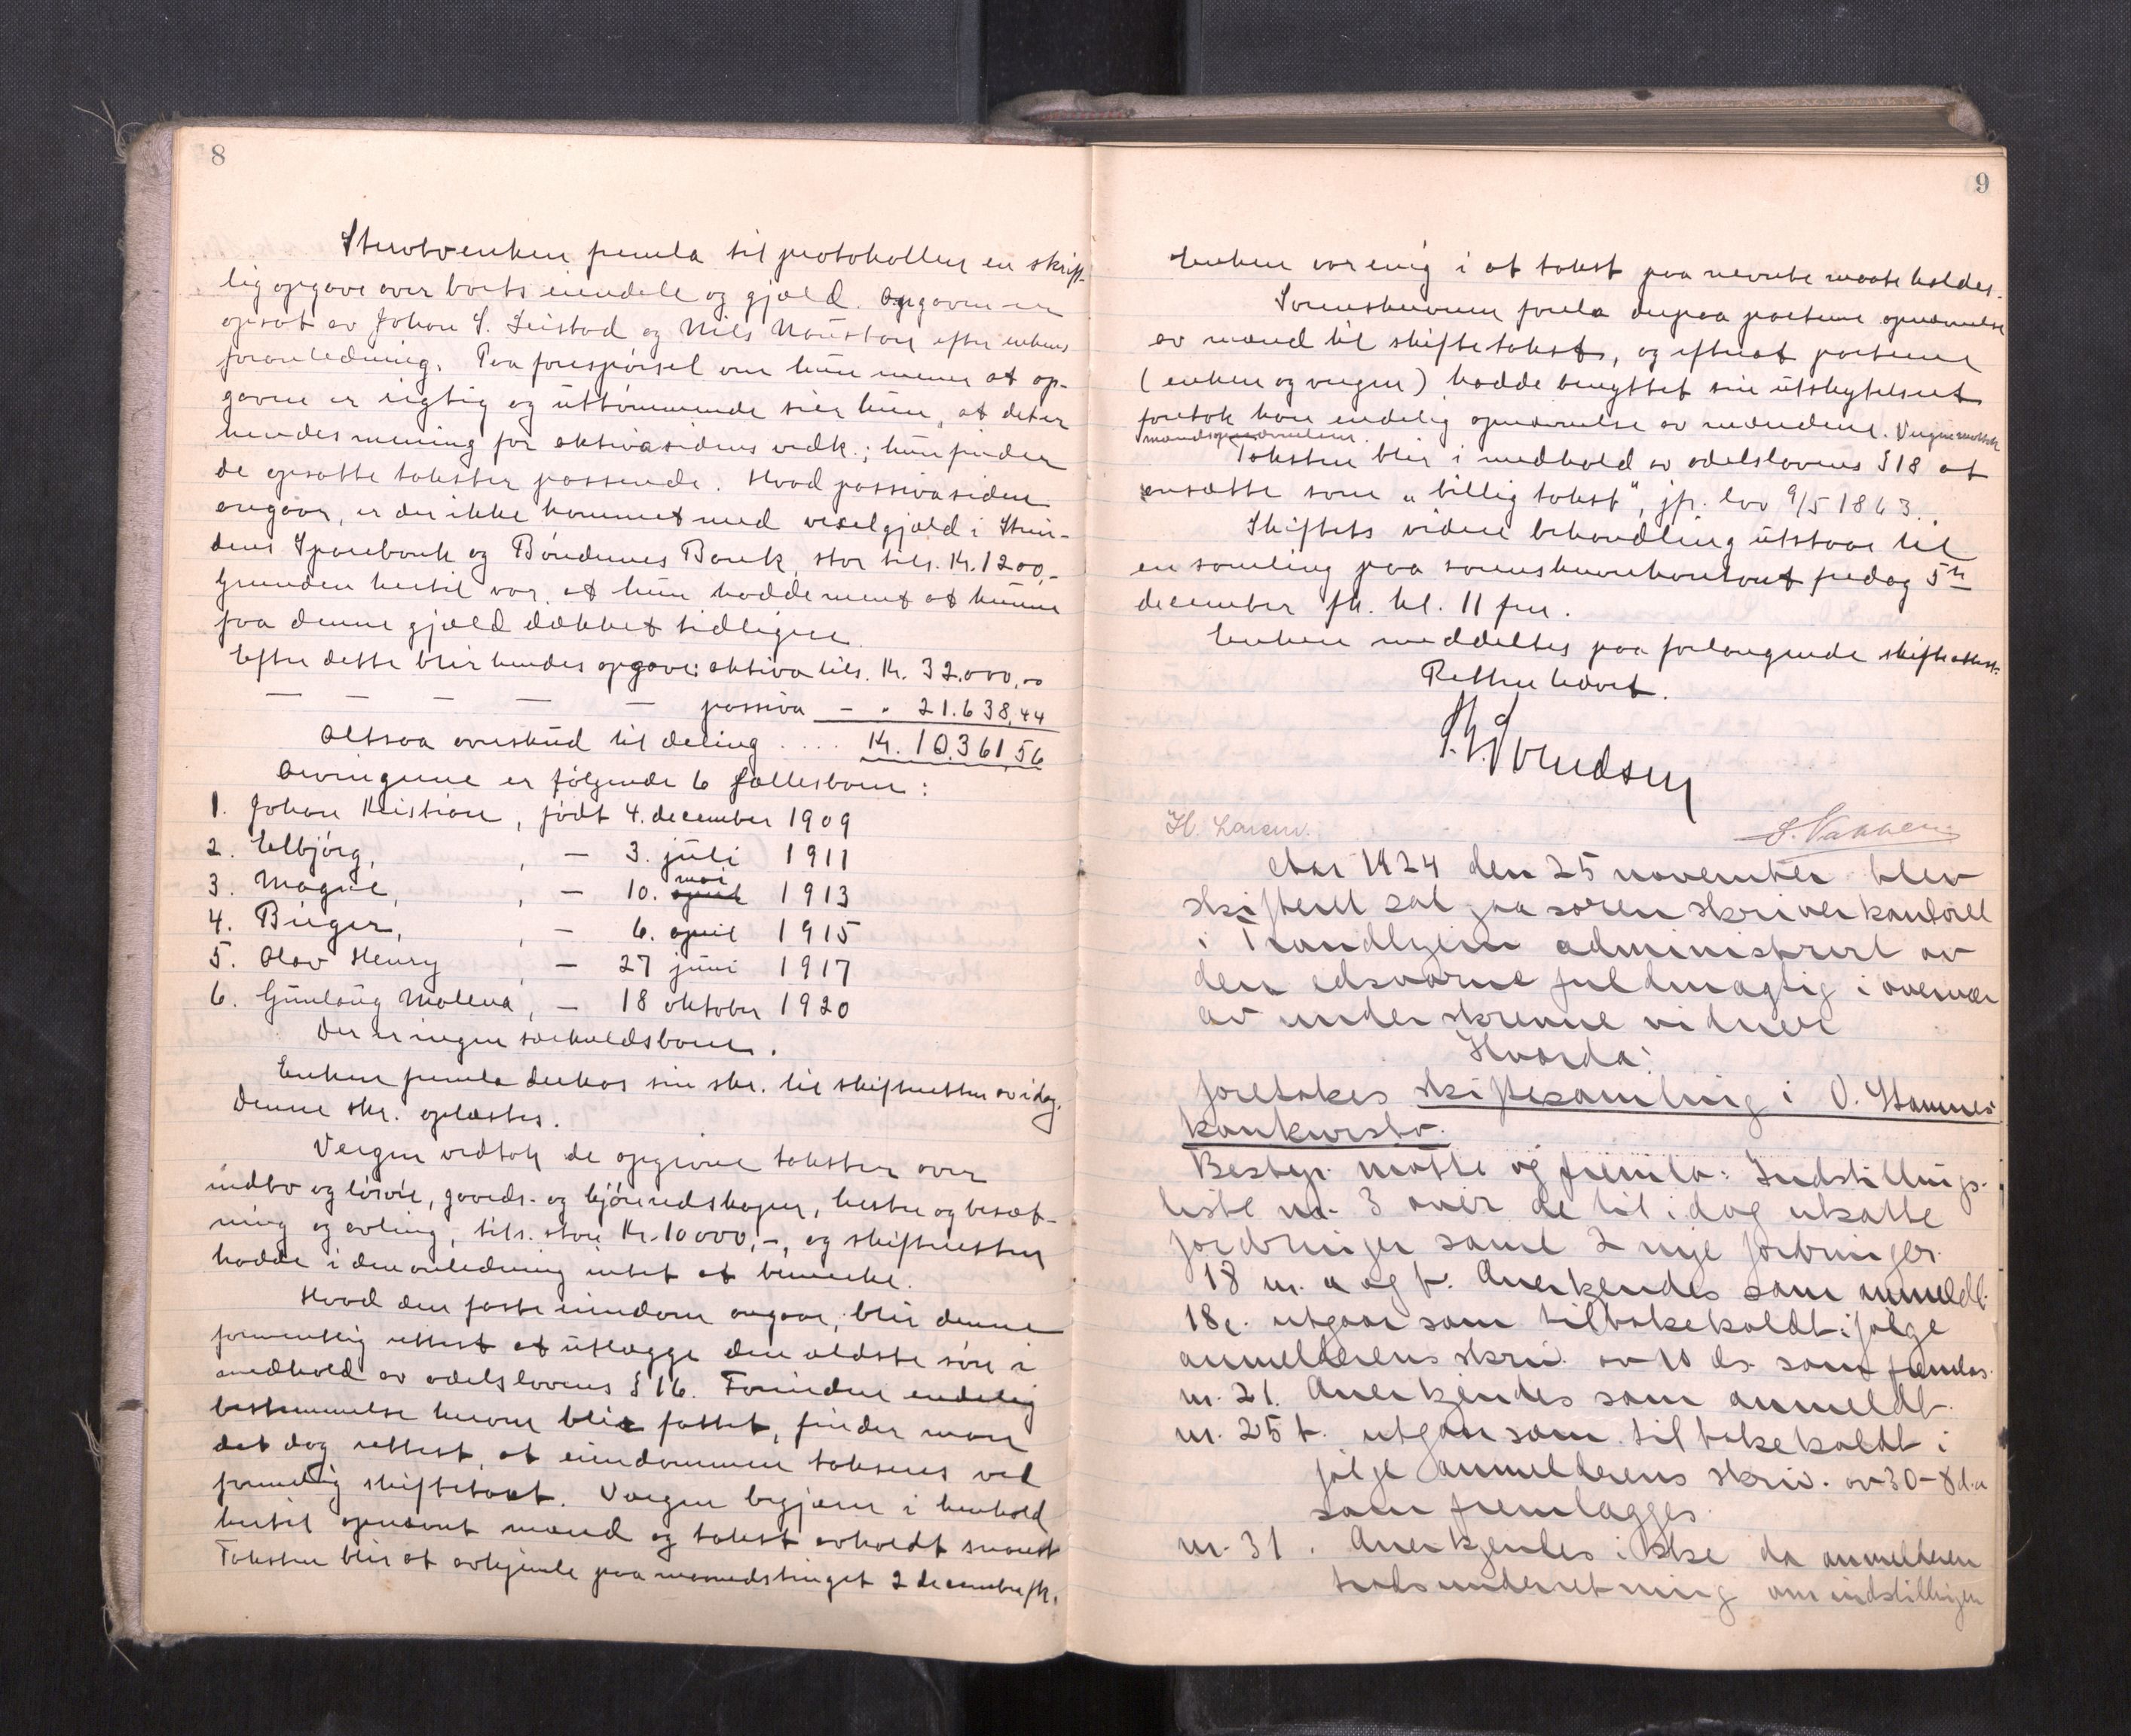 8
Stervboenken fremla til protokollen en skrift-
lig opgave over boets eiendele og gjæld. Opgaven er
opsat av Johan S. Leistad og Nils Naustan efter enkens
foranledning. Paa forespørsel om hun mener at op-
gaven er rigtig og uttømmende sier hun, at det er
hendes mening for aktivasidens vedk.; hun finder
de opsatte takster passende. Hvad passivasiden
angaar, er der ikke kommet med vexelgjæld i Strin-
dens Sparebank og Bøndernes Bank, stor tils. Kr. 1200,-
Grunden hertil var, at hun hadde ment at kunne
faa denne gjæld dækket tidligere.
Efter dette blir hendes opgave: aktiva tils. Kr. 32.000,00
— — — — passiva - " 21.638,44
Altsaa overskud til deling .... Kr. 10.361,56
Arvingerne er følgende 6 fællesbarn:
1. Johan Kristian, født 4. december 1909
2. Elbjørg, , — 3. juli 1911
3. Magne, , — 10. april mai 1913
4. Birger, , — 6. april 1915
5. Olav Henry , — 27 juni 1917
6. Gunlaug Malena, — 18 oktober 1920
Der er ingen særkuldsbarn.
Enken fremla derhos sin skr. til skifteretten av idag.
Denne skr. oplæstes.
Vergen vedtok de opgivne takster over
indbo og løsøre, gaards- og kjøreredskaper, hester og besæt-
ning og avling, tils. stor Kr. 10000,-, og skifteretten
hadde i den anledning intet at bemerke.
Hvad den faste eiendom angaar, blir denne
formentlig rettest at utlægge den ældste søn i
medhold av odelslovens § 16. Forinden endelig
bestemmelse herom blir fattet, finder man
det dog rettest, at eiendommen takseres ved
formelig skiftetakst. Vergen begjærer i henhold
hertil opnævnt mænd og takst avholdt snarest
Taksten blir at avhjemle paa maanedstinget 2 december fk.
9
Enken var enig i at takst paa nævnte maate holdes.
Sorenskriveren forela derpaa parterne opnævnelse
av mænd til skiftetakst, og efterat parterne
(enken og vergen) hadde benyttet sin utskytelsesret
foretok han endelig opnævnelse av mændene. Vergen mottok
mandsopnævnelsen.
Taksten blir i medhold av odelslovens § 18 at
ansætte som "billig takst", jfr. lov 9/5 1863.
Skiftets videre behandling utstaar til
en samling paa sorenskriverkontoret fredag 5te
december fk. kl. 11 fm.
Enken meddeltes paa forlangende skifteattest.
Retten hævet.
Svendsen
H. Larsen. S. Nakken
Aar 1924 den 25 november blev
skifteret sat paa sorenskriverkontoret
i Trondhjem administrert av
den edsvorne fuldmægtig i overvær
av underskrevne vidner
Hvorda:
foretokes skiftesamling i O. Stamnes
konkursbo.
Bestyr. møtte og fremla: Indstillings-
liste nr. 3 over de til idag utsatte
fordringer samt 2 nye fordringer.
18 nr. a og b. Anerkjendes som anmeldt.
18 c. utgaar som tilbakekaldt ifølge
anmelderens skriv. av 10 ds. som fremlas.
nr. 21. Anerkjendes som anmeldt.
nr. 25 b. utgaar som tilbakekaldt i
følge anmelderens skriv. av 30-8 d.a
som fremlægges.
nr. 31. Anerkjendes ikke da anmelderen
trods underretning om indstillingen